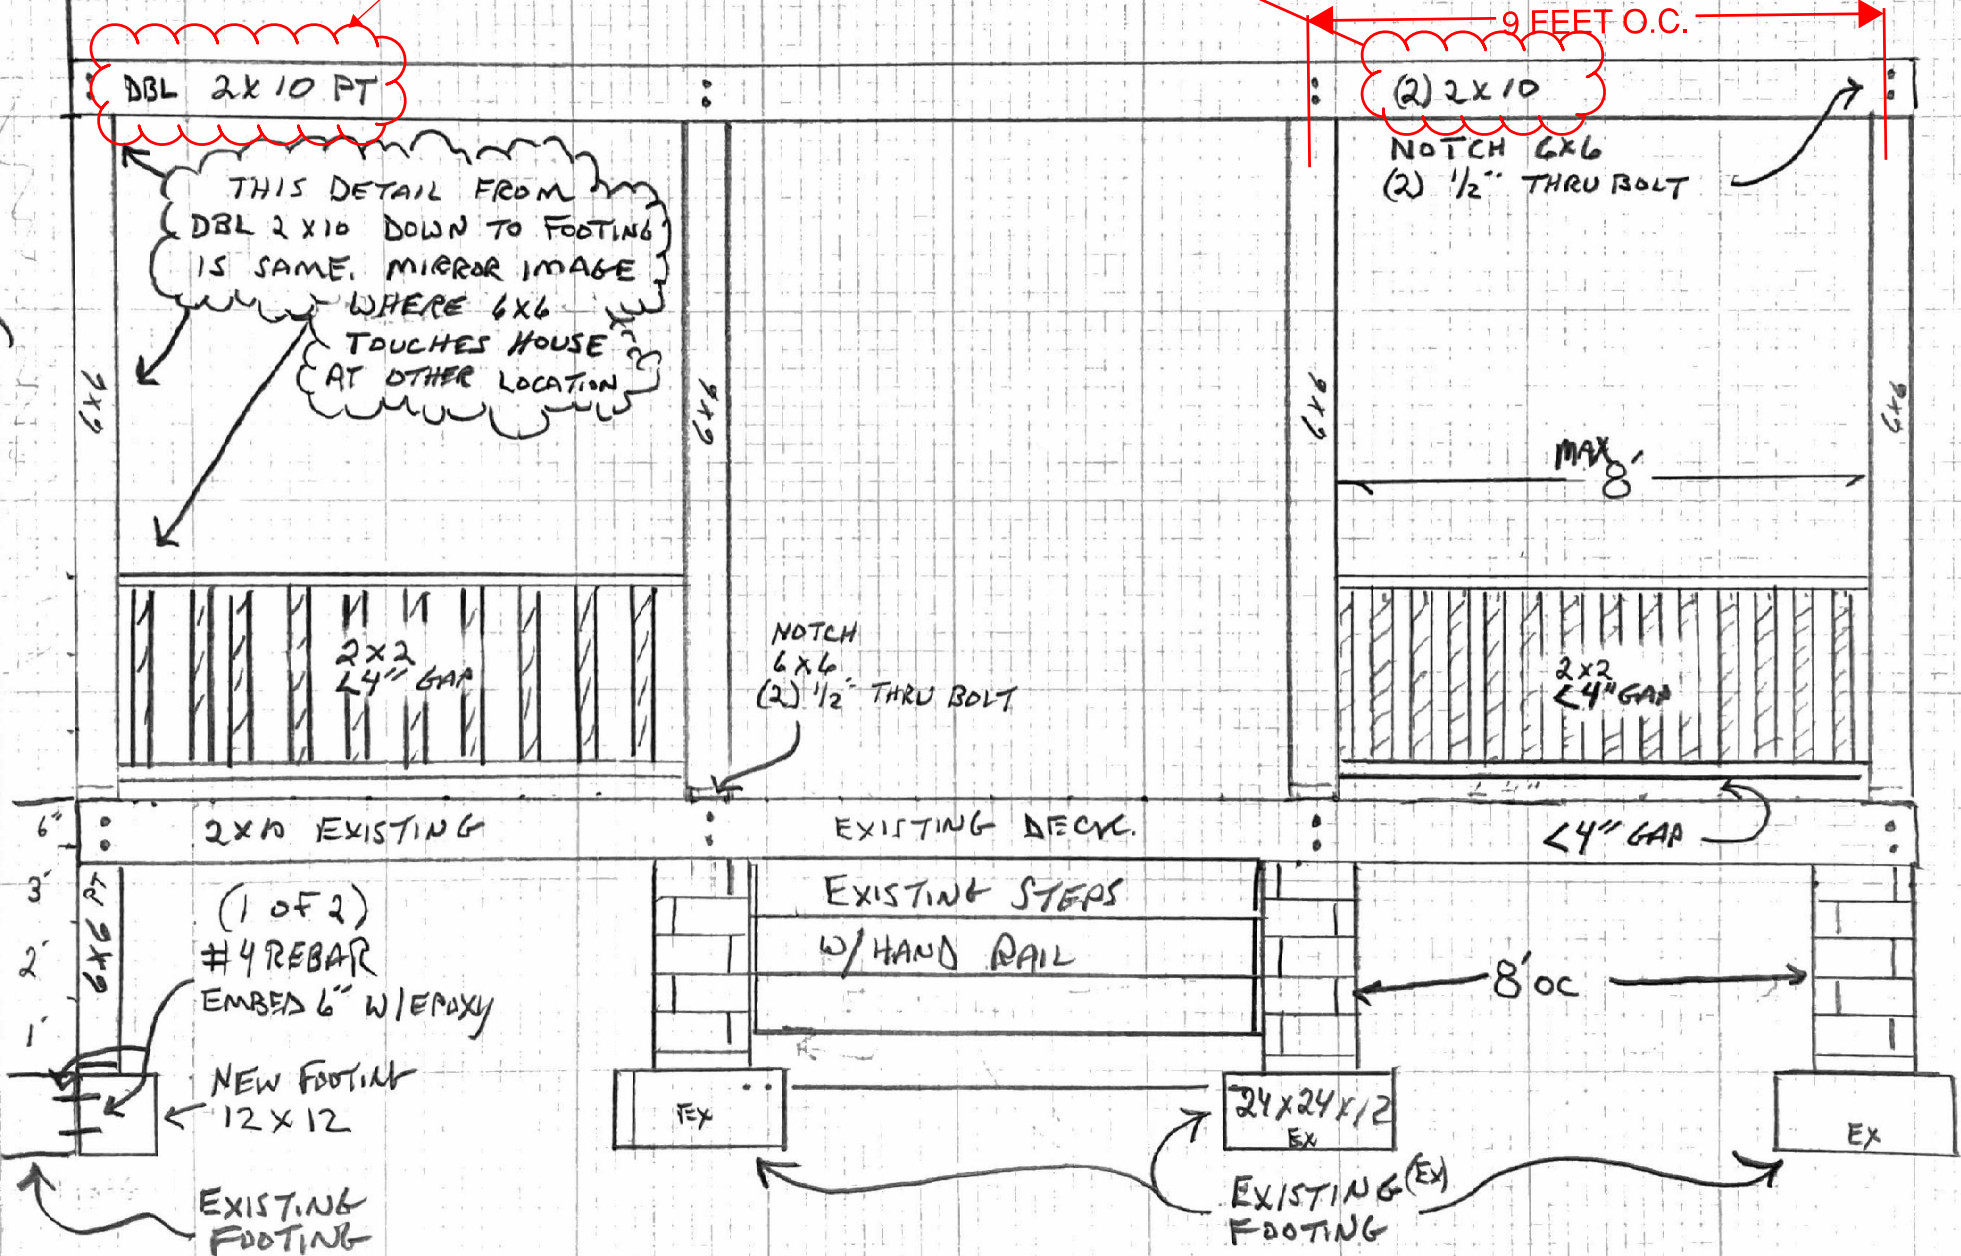 9 FEET O.C.
DBL 2X10 PT
(2) 2X10
NOTCH 6X6
(2) 1/2" THRU BOLT
THIS DETAIL FROM
DBL 2X10 DOWN TO FOOTING
IS SAME. MIRROR IMAGE
WHERE 6X6
TOUCHES HOUSE
AT OTHER LOCATION
6X6
6X6
6X6
6X6
MAX
8'
2X2
<4" GAP
NOTCH
6X6
(2) 1/2" THRU BOLT
2X2
<4" GAP
6"
2X10 EXISTING
EXISTING DECK.
<4" GAP
3'
2'
1'
6X6 PT
(1 OF 2)
#4 REBAR
EMBED 6" W/EPOXY
EXISTING STEPS
W/ HAND RAIL
8' OC
NEW FOOTING
12X12
EX
24X24X12
EX
EX
EXISTING
FOOTING
EXISTING (EX)
FOOTING